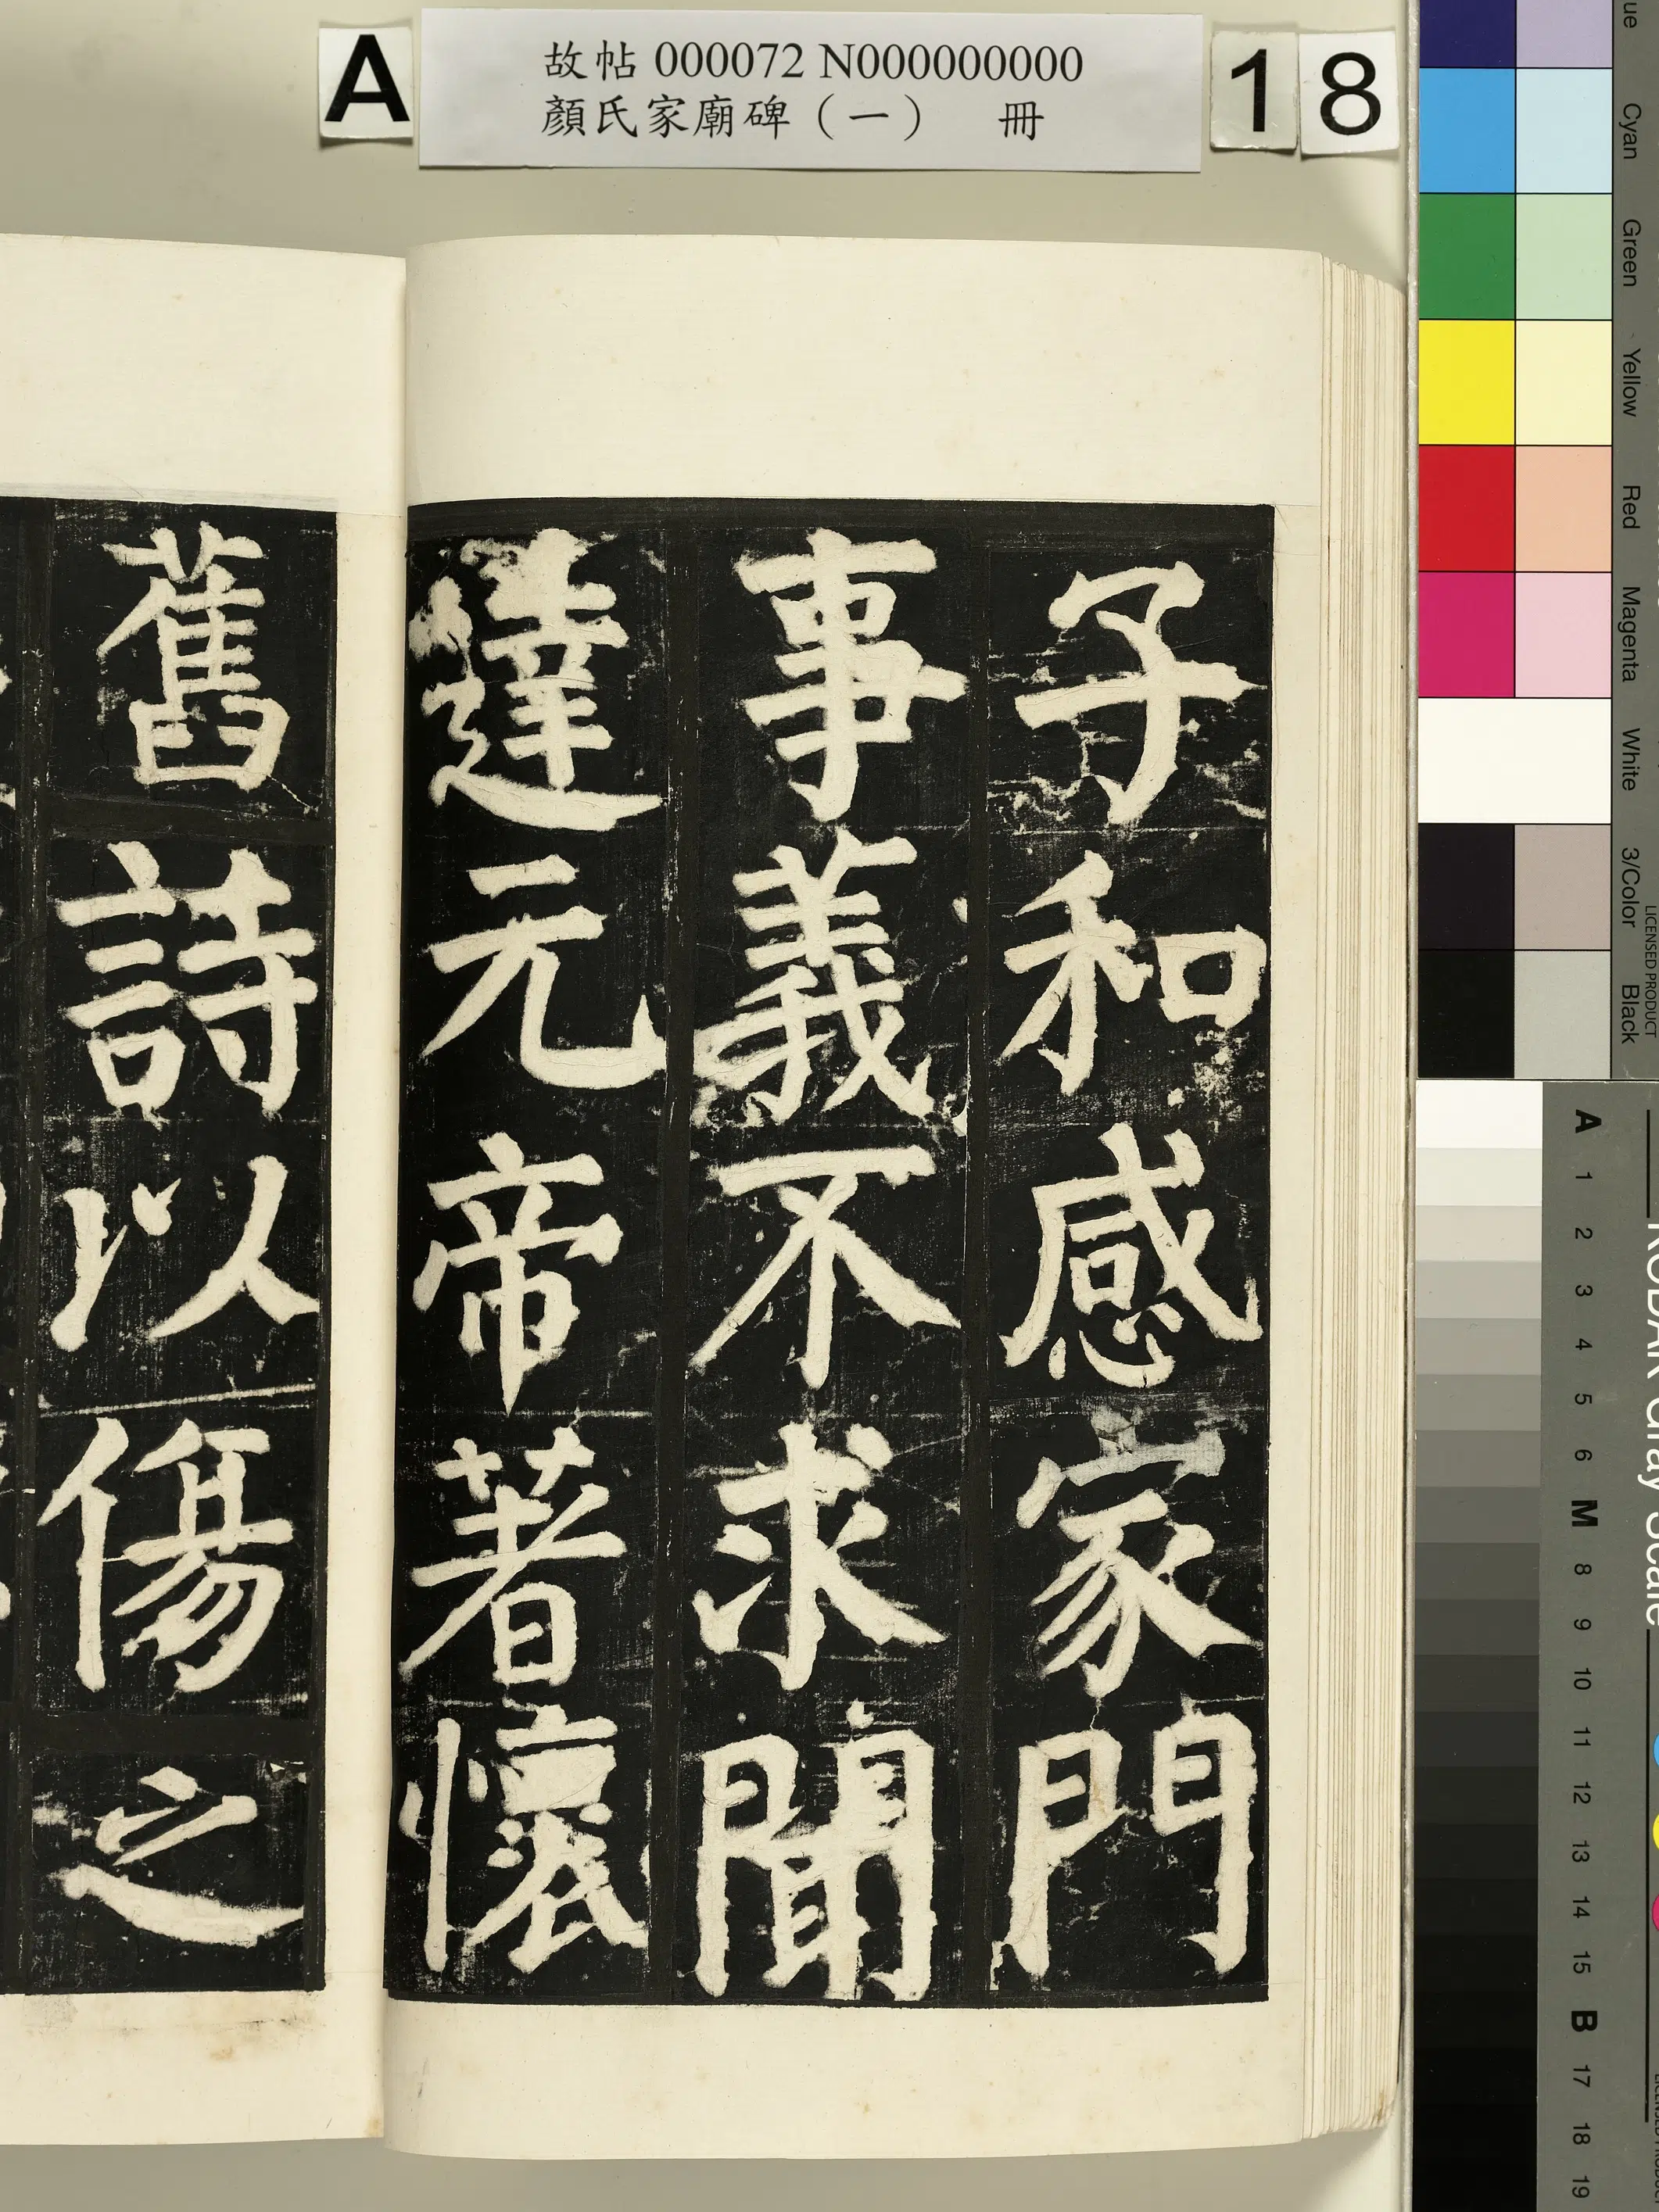 A
故帖 000072 N000000000
顏氏家廟碑（一） 冊
18
子和感家門
事義不求聞
達元帝著懷
舊詩以傷之
Cyan
Green
Yellow
Red
Magenta
White
3/Color
Black
LICENSED PRODUCT
KODAK Gray Scale
A 1 2 3 4 5 6 M 8 9 10 11 12 13 14 15 B 17 18 19